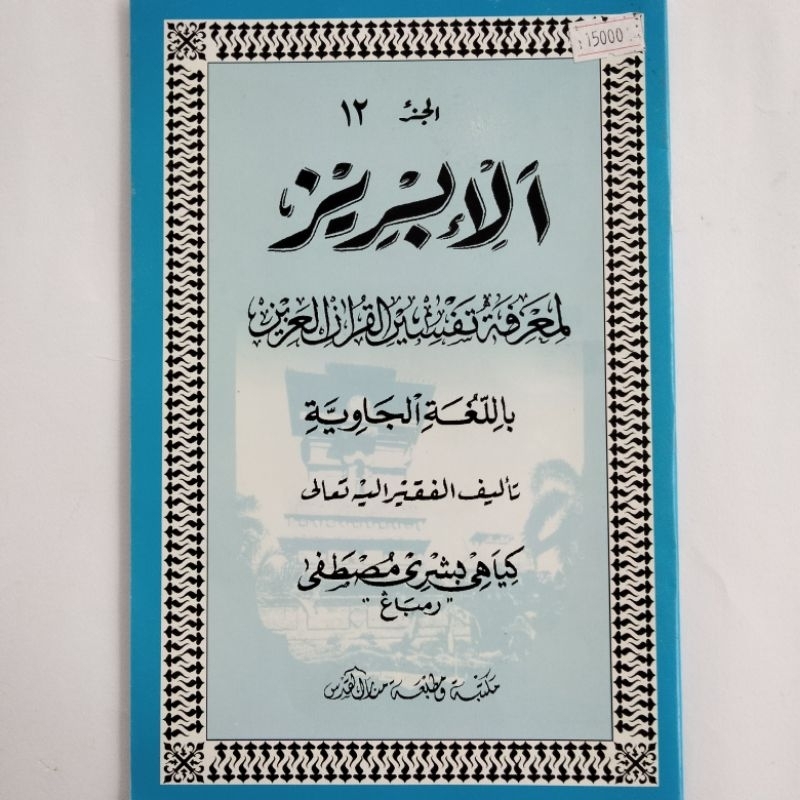 15000
الجزء ١٢
اَلْاِبْرِيْز
لمعرفة تفسير القرآن العزيز
بِاللُّغَةِ الْجَاوِيَّةِ
تأليف الفقير اليه تعالى
كياهي بشرى مصطفى
"رمباڠ"
مكتبة ومطبعة منارا القدس